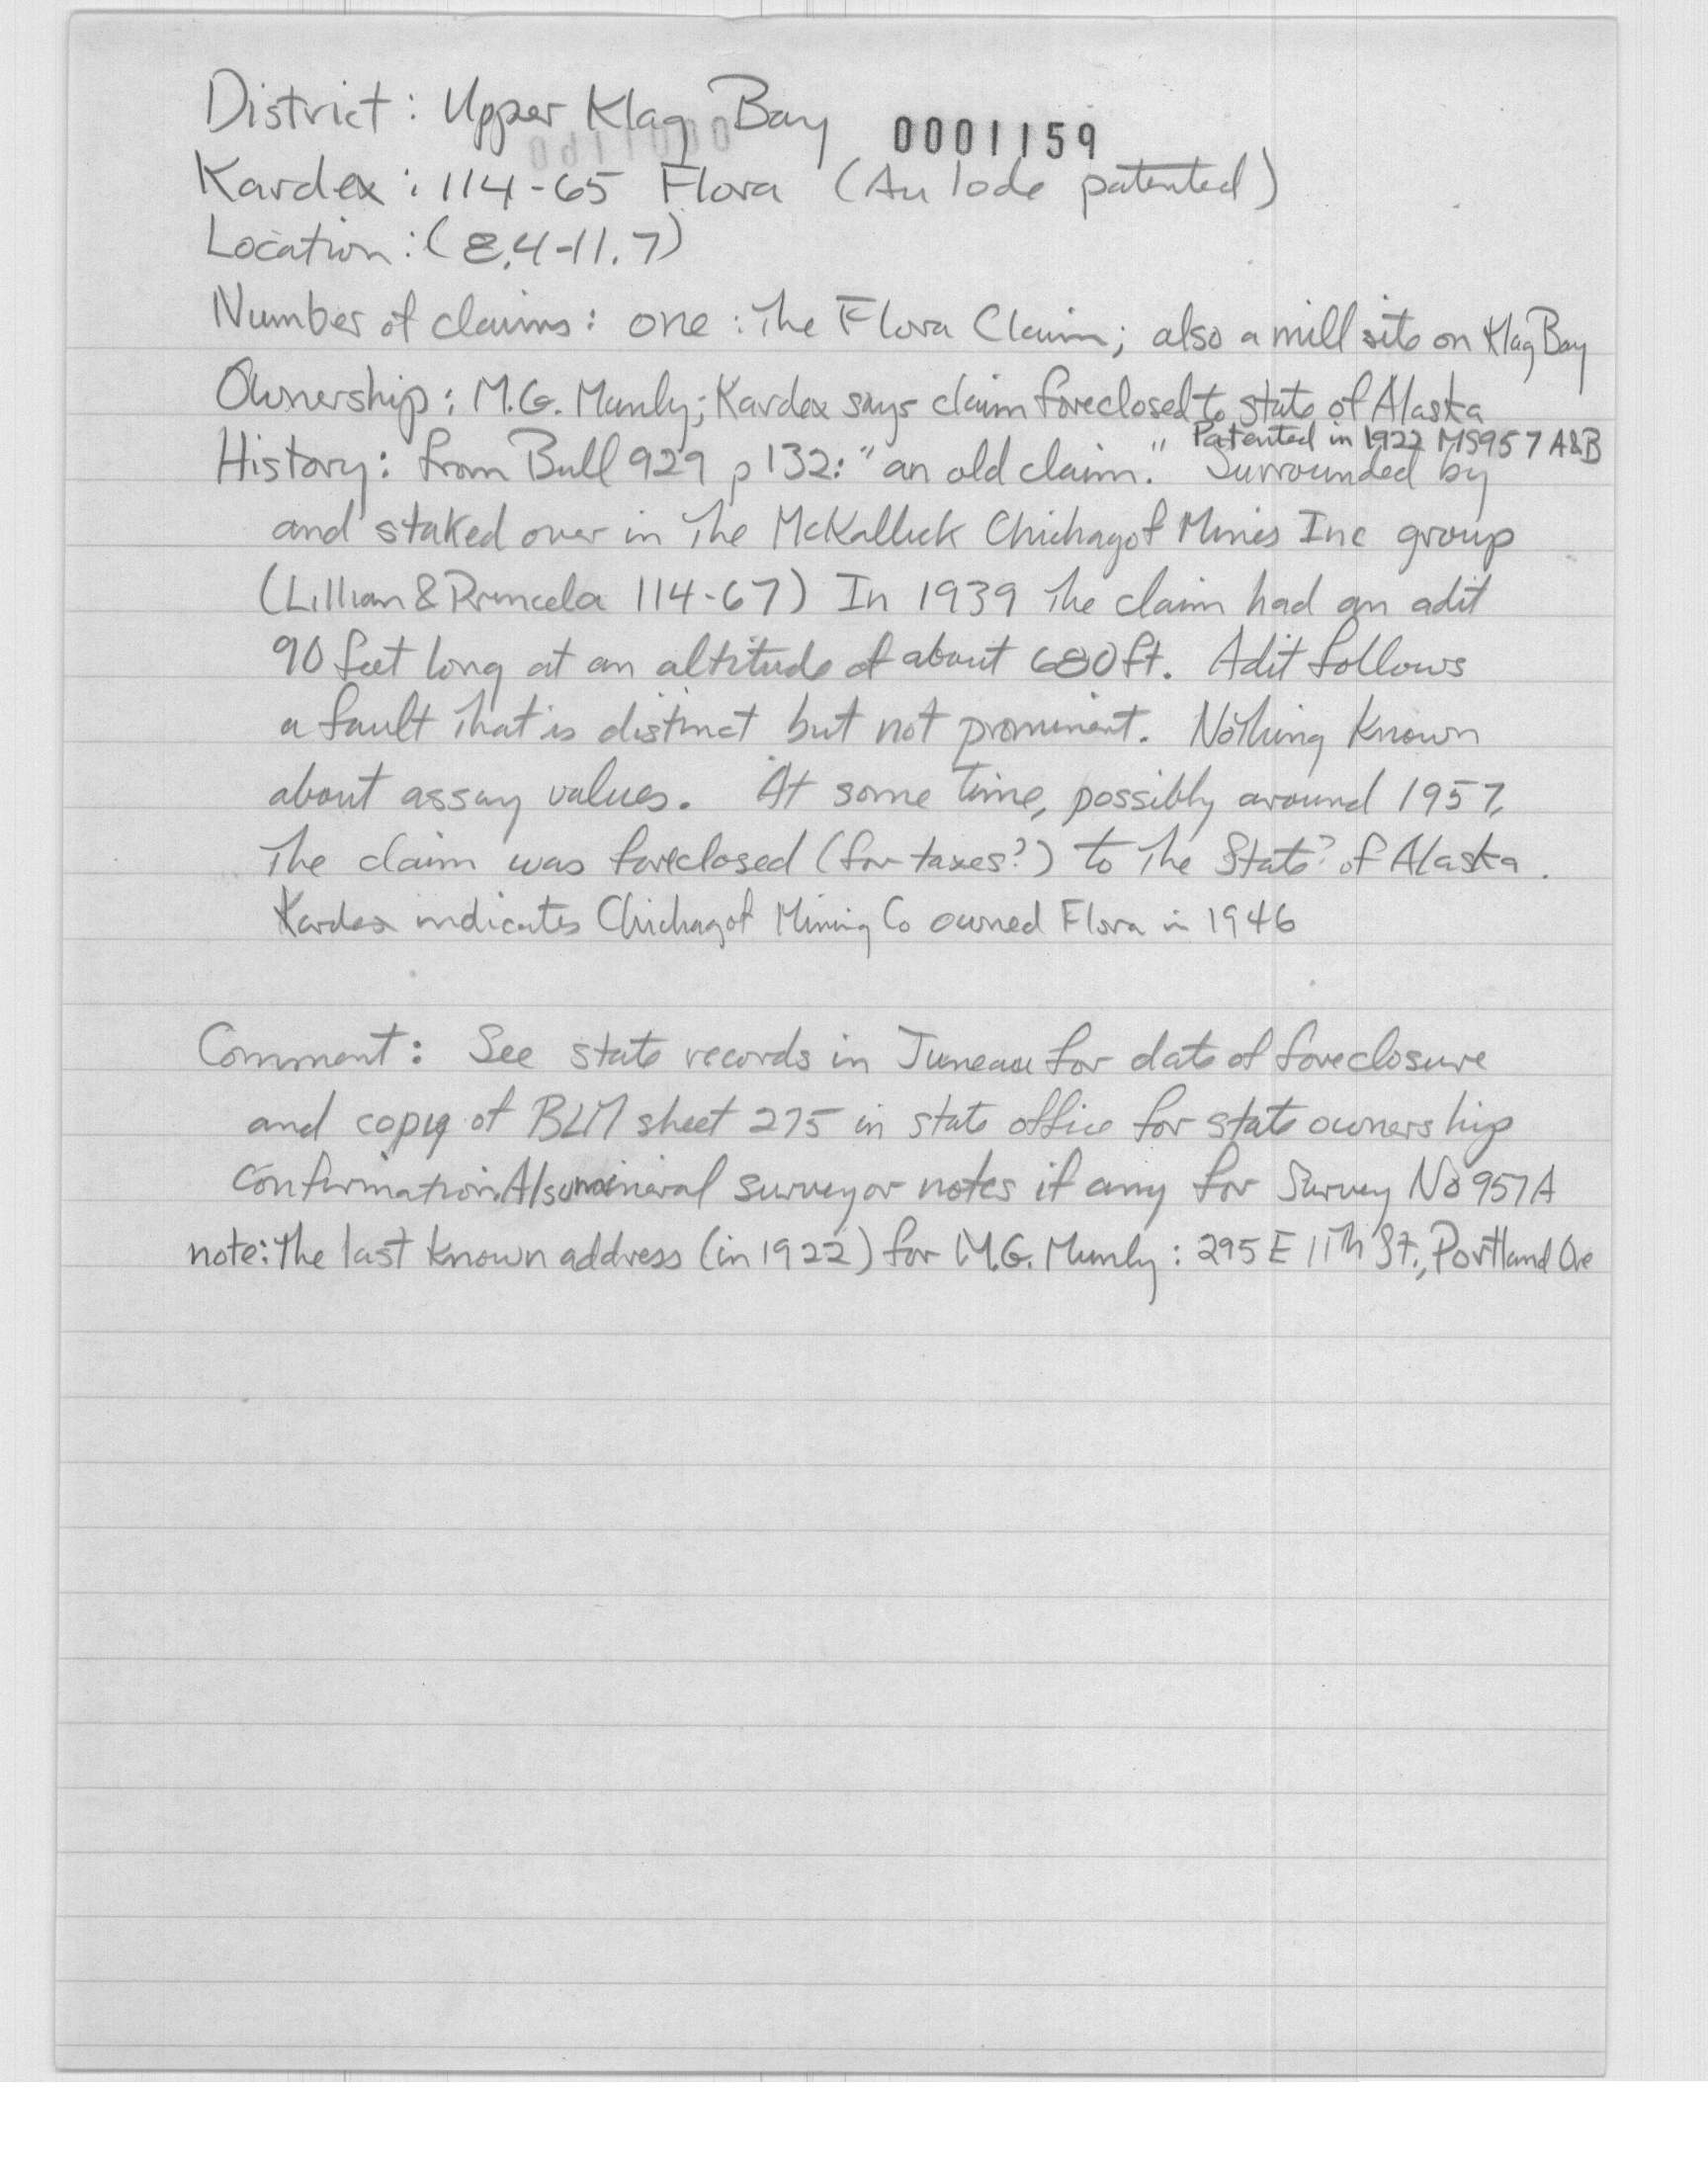 District: Upper Klag Bay 0001159
Kardex: 114-65 Flora (Au lode patented)
Location: (8.4-11.7)
Number of claims: one: The Flora Claim; also a mill site on Klag Bay
Ownership: M.G. Munly; Kardex says claim foreclosed to state of Alaska
Patented in 1922 MS957 A&B
History: from Bull 929 p 132: "an old claim." Surrounded by
and staked over in The McKallick Chichagof Mines Inc group
(Lillian & Princela 114-67) In 1939 The claim had an adit
90 feet long at an altitude of about 680 ft. Adit follows
a fault That is distinct but not prominent. Nothing known
about assay values. At some Time, possibly around 1957,
The claim was foreclosed (for taxes?) to The State? of Alaska.
Kardex indicates Chichagof Mining Co owned Flora in 1946
Comment: See state records in Juneau for date of foreclosure
and copy of BLM sheet 275 in state office for state ownership
confirmation. Also mineral surveyor notes if any for Survey No 957A
note: The last known address (in 1922) for M.G. Munly: 295 E 11Th St., Portland Ore